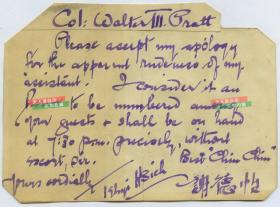 Col: Walter M. Pratt
Please accept my apology
for the apparent rudeness of my
assistant. I consider it an
to be numbered
your guests & shall be on hand
at 7:30 p.m. precisely, without
escort, Sir.
Best "Chin Chin"
Yours cordially
謝德怡